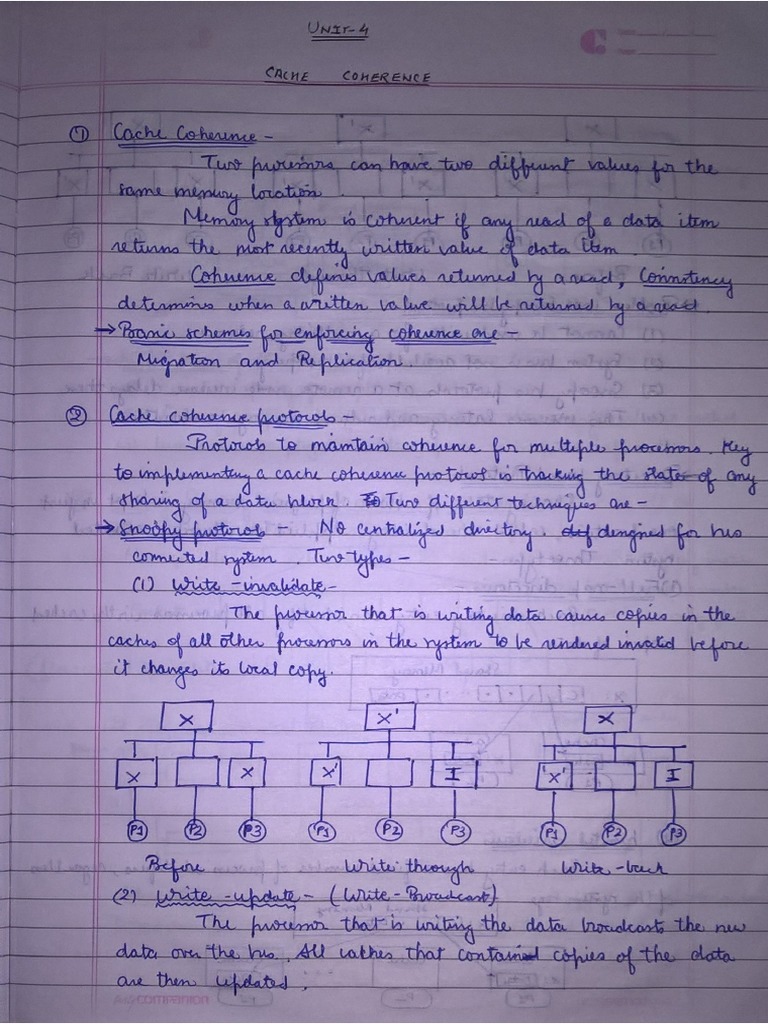 UNIT-4
CACHE COHERENCE
① Cache Coherence -
Two processors can have two different values for the
same memory location.
Memory system is coherent if any read of a data item
returns the most recently written value of data item.
Coherence defines values returned by a read, Consistency
determines when a written value will be returned by a read.
→ Basic schemes for enforcing coherence are -
Migration and Replication.
② Cache coherence protocols -
Protocols to maintain coherence for multiple processors. Key
to implementing a cache coherence protocol is tracking the state of any
sharing of a data block. Two different techniques are -
→ Snoopy protocol - No centralized directory. designed for bus
connected system. Two types -
(1) Write-invalidate -
The processor that is writing data causes copies in the
caches of all other processors in the system to be rendered invalid before
it changes its local copy.
X X' X
X X X' I X' I
P1 P2 P3 P1 P2 P3 P1 P2 P3
Before Write through Write-back
(2) Write-update - (Write-Broadcast)
The processor that is writing the data broadcasts the new
data over the bus. All caches that contain copies of the data
are then updated.
companion